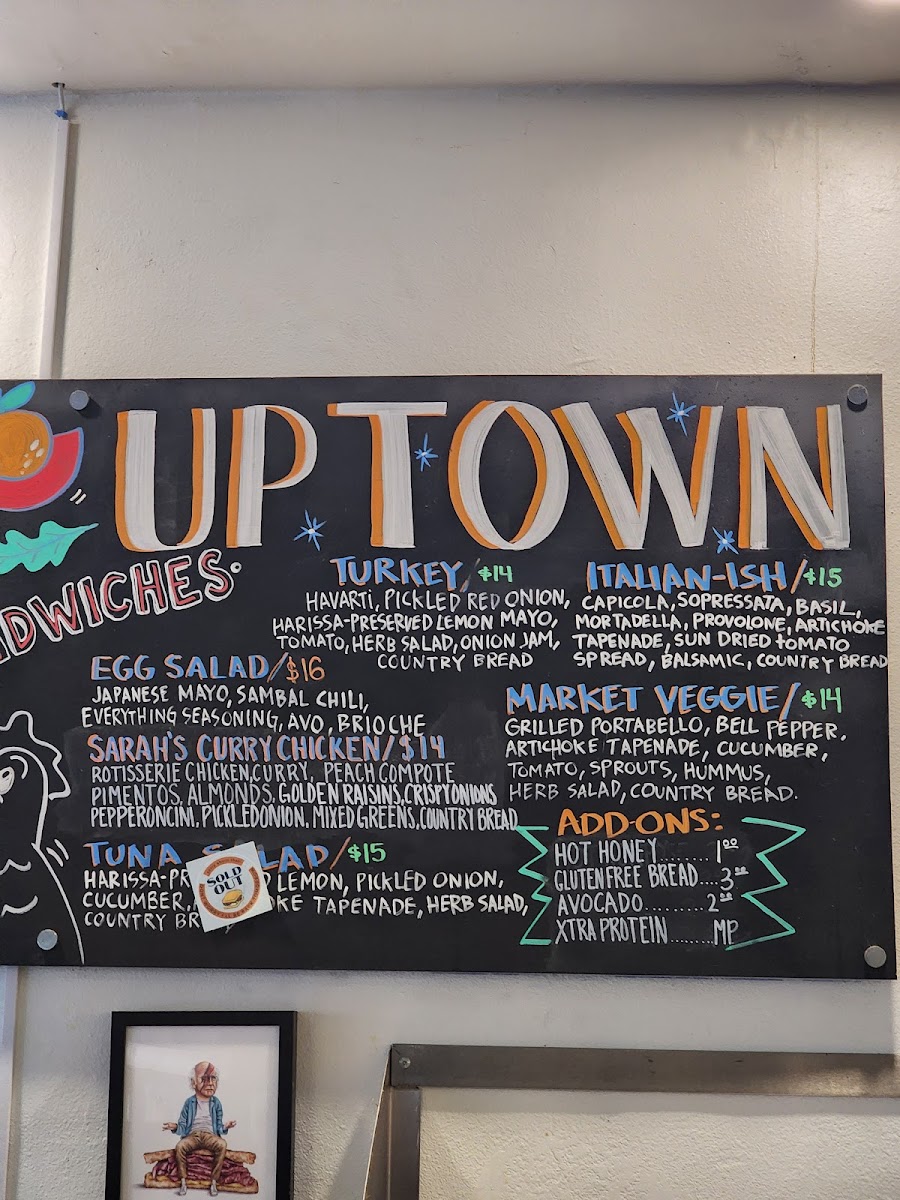 UPTOWN
SANDWICHES.
TURKEY/$14
HAVARTI, PICKLED RED ONION,
HARISSA-PRESERVED LEMON MAYO,
TOMATO, HERB SALAD, ONION JAM,
COUNTRY BREAD
ITALIAN-ISH/$15
CAPICOLA, SOPRESSATA, BASIL,
MORTADELLA, PROVOLONE, ARTICHOKE
TAPENADE, SUN DRIED TOMATO
SPREAD, BALSAMIC, COUNTRY BREAD
EGG SALAD/$16
JAPANESE MAYO, SAMBAL CHILI,
EVERYTHING SEASONING, AVO, BRIOCHE
MARKET VEGGIE/$14
GRILLED PORTABELLO, BELL PEPPER,
ARTICHOKE TAPENADE, CUCUMBER,
TOMATO, SPROUTS, HUMMUS,
HERB SALAD, COUNTRY BREAD.
SARAH'S CURRY CHICKEN/$14
ROTISSERIE CHICKEN, CURRY, PEACH COMPOTE
PIMENTOS, ALMONDS, GOLDEN RAISINS, CRISPY ONIONS
PEPPERONCINI, PICKLED ONION, MIXED GREENS, COUNTRY BREAD
TUNA SALAD/$15
HARISSA-PR LEMON, PICKLED ONION,
CUCUMBER, OKE TAPENADE, HERB SALAD,
COUNTRY BR
SOLD
OUT
ADD-ONS:
HOT HONEY........1.00
GLUTEN FREE BREAD....3.00
AVOCADO..........2.00
XTRA PROTEIN........MP